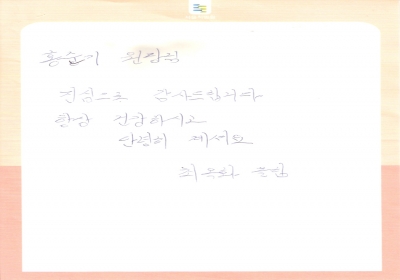 홍순기 원장님
진심으로 감사드립니다
항상 건강하시고
단령히 계세요
최옥화 올림